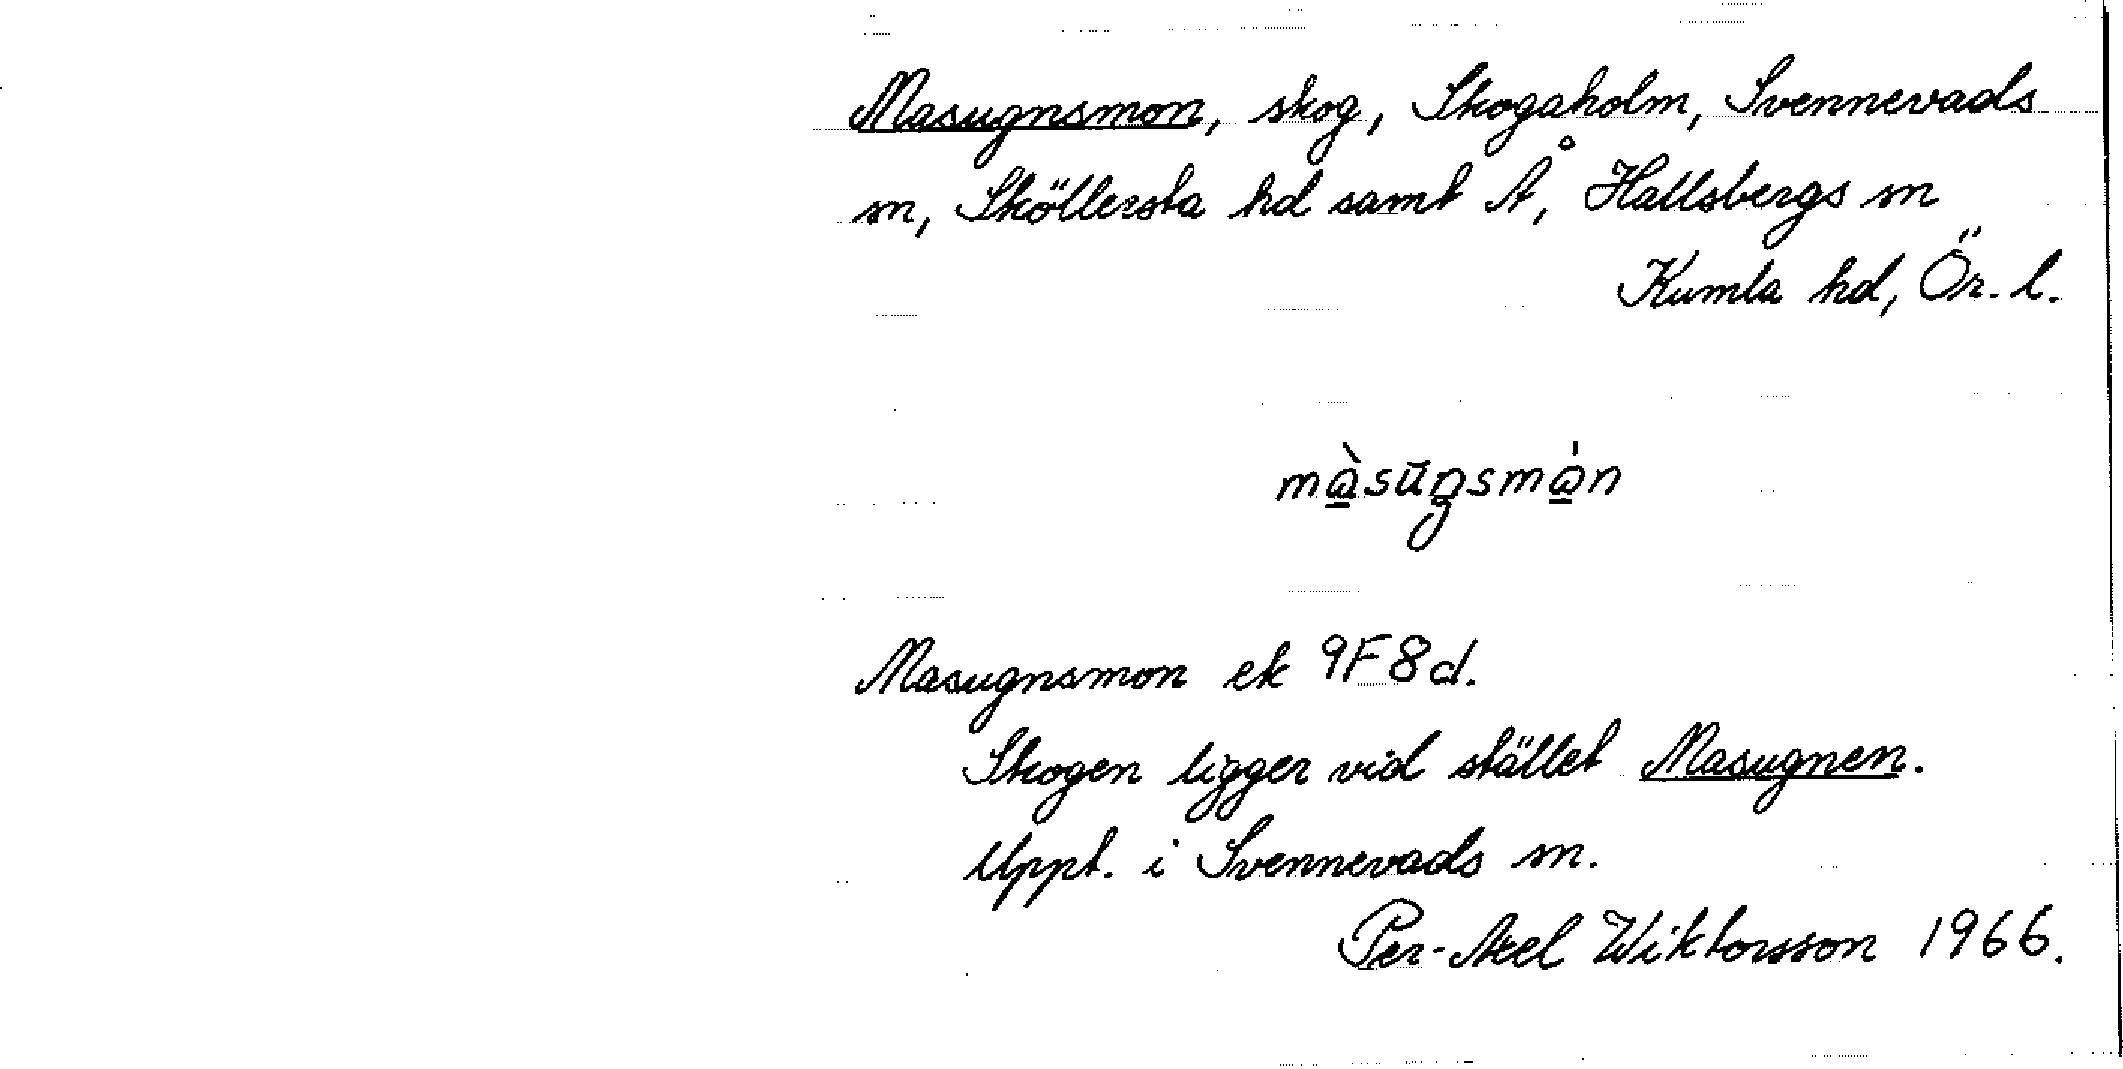 Masugnsmon, skog, Skogaholm, Svennevads
sn, Sköllersta hd samt Å, Hallsbergs sn
Kumla hd, Ör. l.
Masugnsmon ek 9F8d.
Skogen ligger vid stället Masugnen.
Uppt. i Svennevads sn.
Per-Axel Wiktorsson 1966.